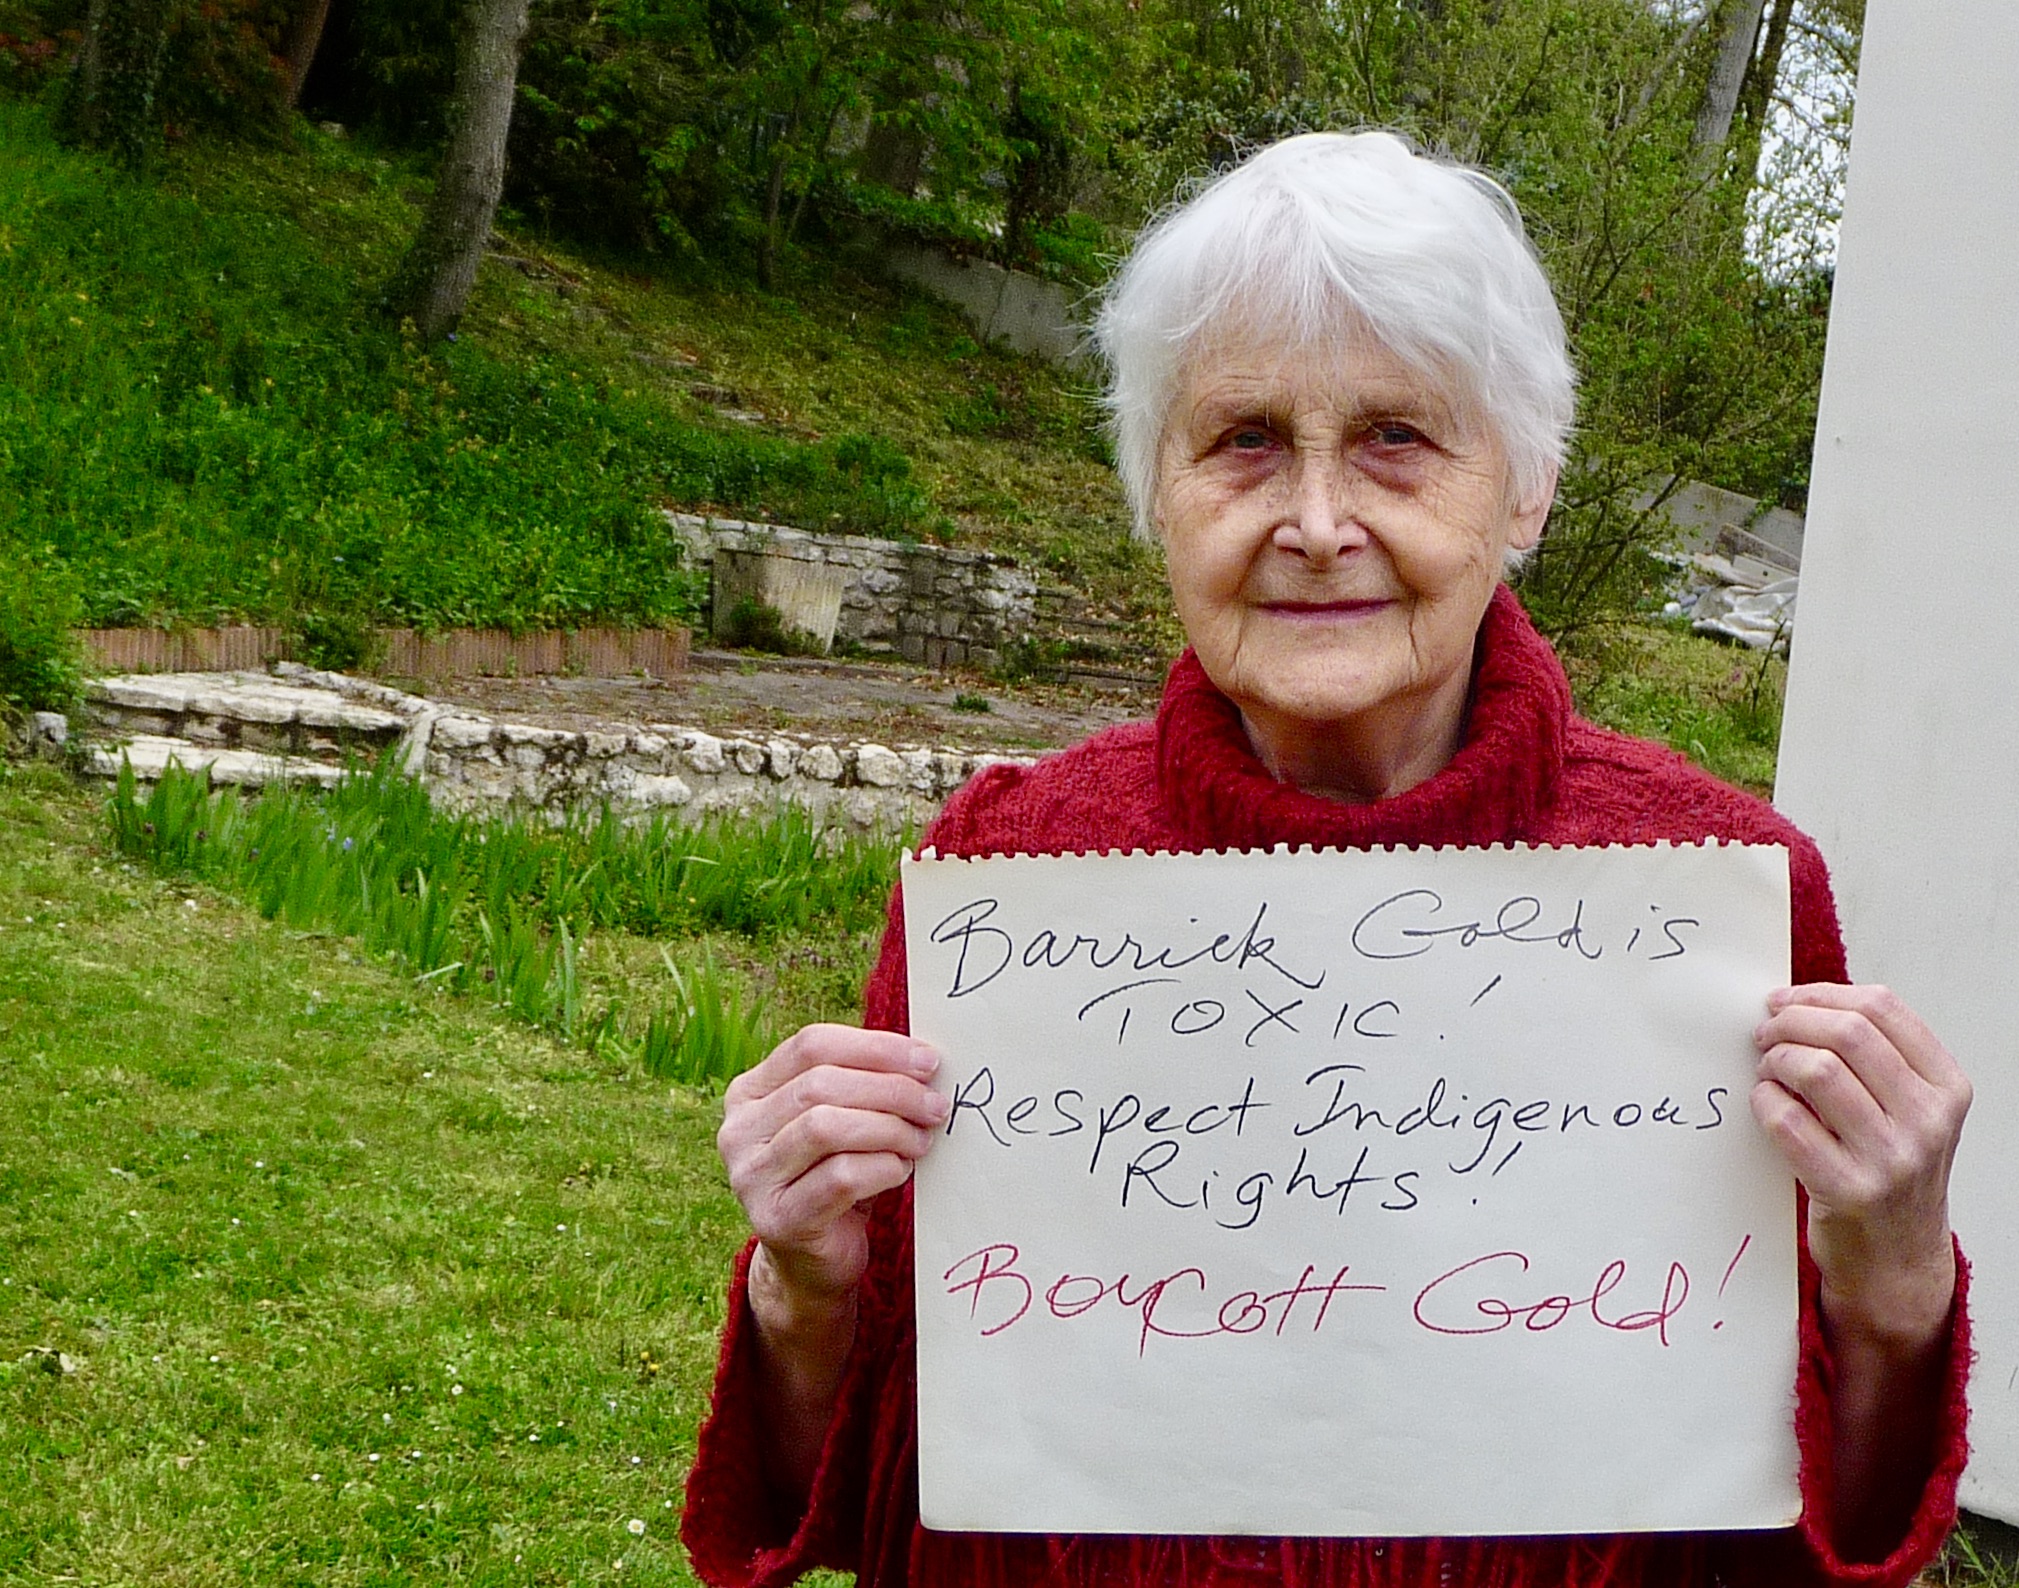 Barrick Gold is
TOXIC!
Respect Indigenous
Rights!
Boycott Gold!